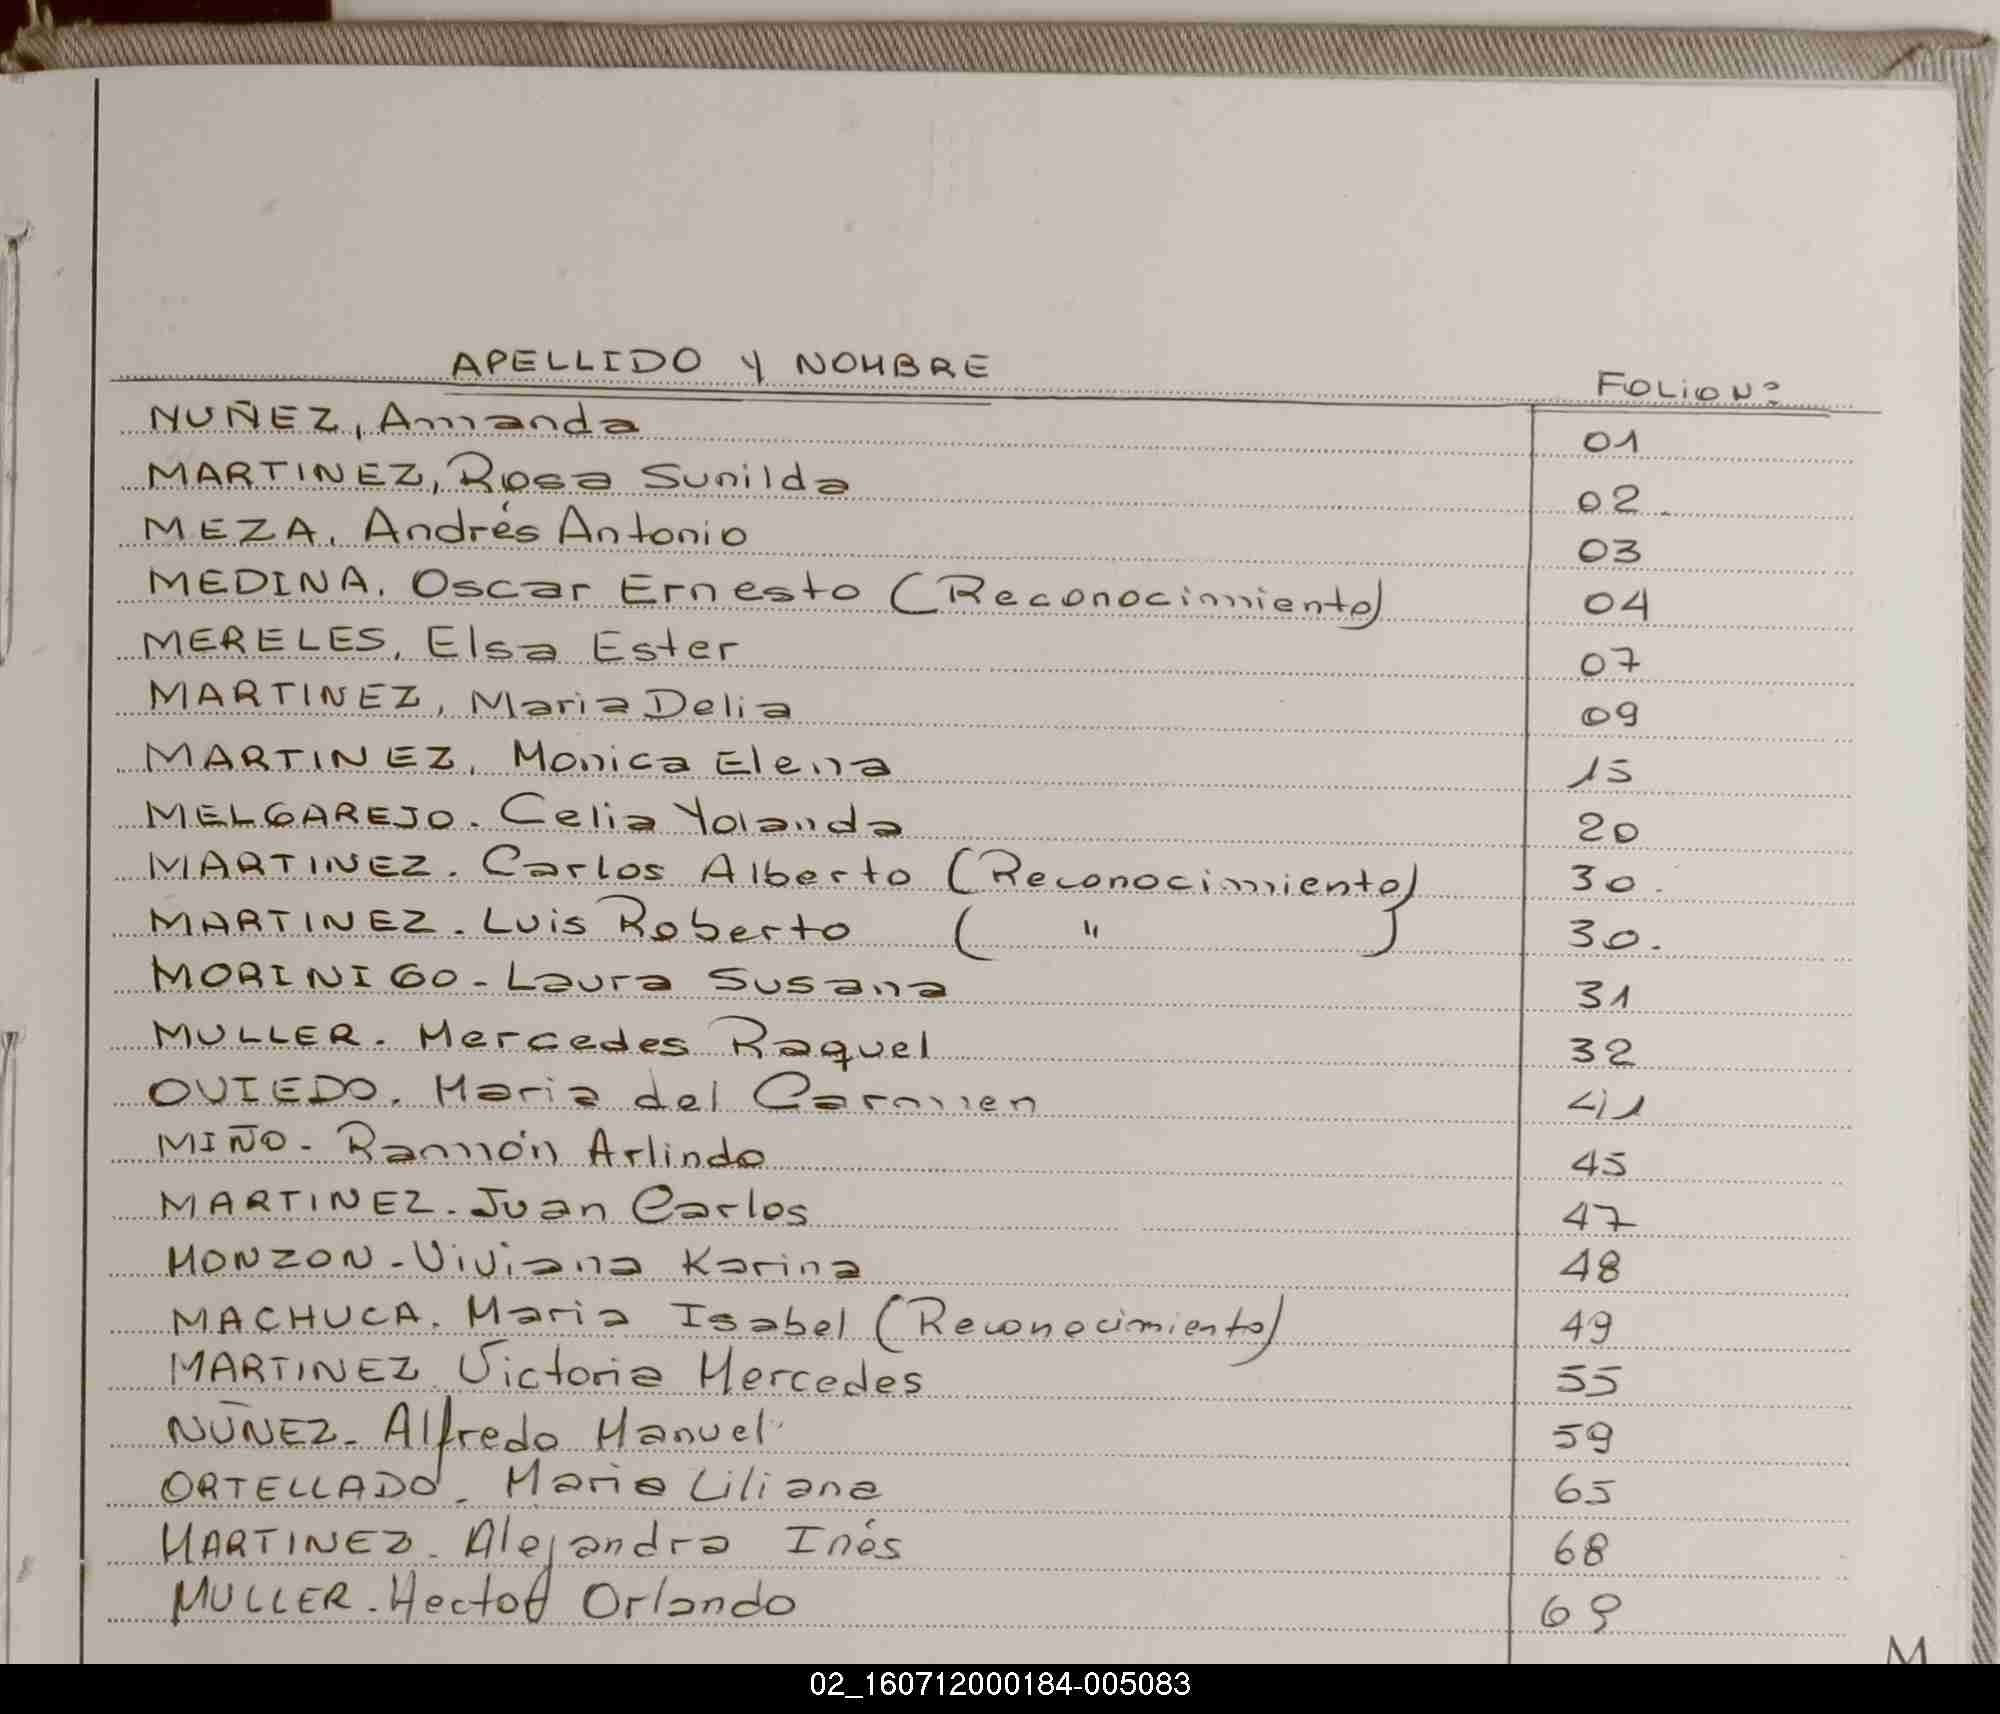 APELLIDO Y NOMBRE FOLIO Nº
NUÑEZ, Amanda 01
MARTINEZ, Rosa Sunilda 02
MEZA, Andrés Antonio 03
MEDINA, Oscar Ernesto (Reconocimiento) 04
MERELES, Elsa Ester 07
MARTINEZ, Maria Delia 09
MARTINEZ, Monica Elena 15
MELGAREJO. Celia Yolanda 20
MARTINEZ. Carlos Alberto (Reconocimiento) 30.
MARTINEZ. Luis Roberto ( " ) 30.
MORINIGO - Laura Susana 31
MULLER. Mercedes Raquel 32
OVIEDO. Maria del Carmen 41
MIÑO - Ramón Arlindo 45
MARTINEZ. Juan Carlos 47
MONZON - Viviana Karina 48
MACHUCA. Maria Isabel (Reconocimiento) 49
MARTINEZ. Victoria Mercedes 55
NUÑEZ - Alfredo Manuel 59
ORTELLADO. Maria Liliana 65
MARTINEZ. Alejandra Inés 68
MULLER. Hector Orlando 69
M
02_160712000184-005083